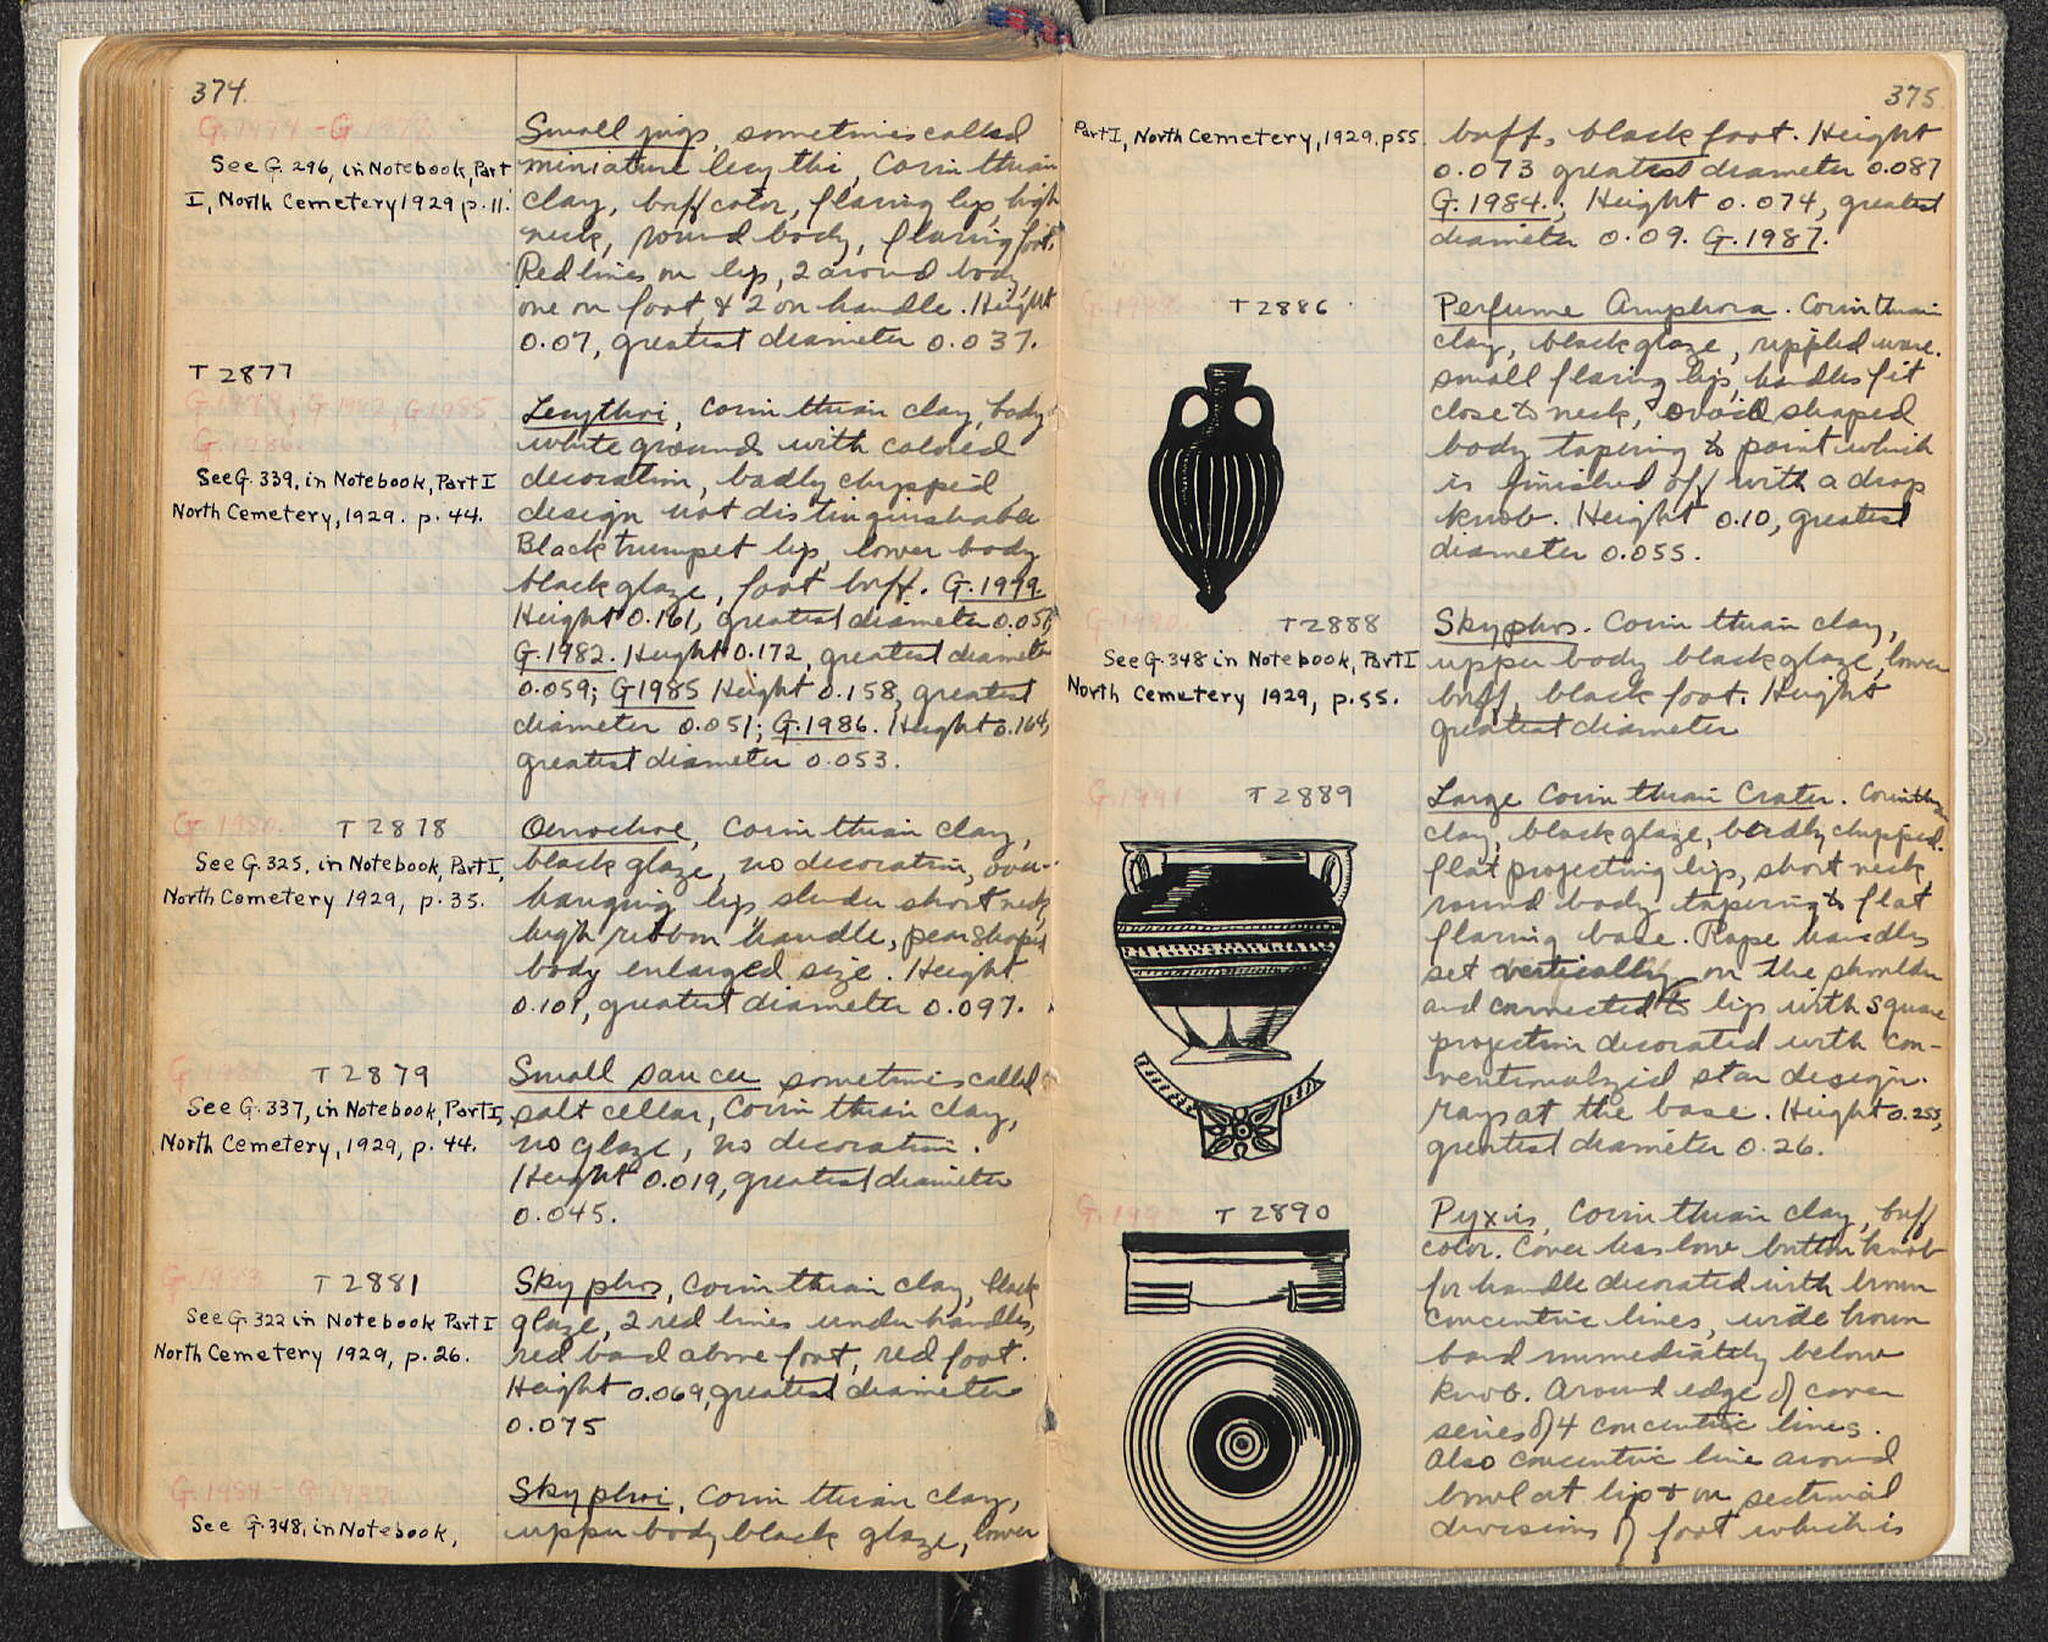 374.
G.1979, G.1982, G.1985
G.1986.
See G. 296, in Notebook, Part
I, North Cemetery 1929 p. 11.
Small jugs, sometimes called
miniature lecythi, Corinthian
clay, buff color, flaring lip, high
neck, round body, flaring foot.
Red lines on lip, 2 around body,
one on foot & 2 on handle. Height
0.07, greatest diameter 0.037.
T 2877
See G. 339, in Notebook, Part I
North Cemetery, 1929. p. 44.
Lecythoi, Corinthian clay, body
white ground with colored
decoration, badly chipped,
design not distinguishable
Black trumpet lip, lower body
black glaze, foot buff. G.1979.
Height 0.161, greatest diameter
G.1982. Height 0.172, greatest diameter
0.059; G1985 Height 0.158, greatest
diameter 0.051; G.1986. Height 0.164,
greatest diameter 0.053.
G.1980. T 2878
See G. 325, in Notebook, Part I,
North Cemetery 1929, p. 35.
Oenochoe, Corinthian clay,
black glaze, no decoration, over-
hanging lip slender short neck,
high ribbon handle, pear shaped
body enlarged size. Height
0.101, greatest diameter 0.097.
T 2879
See G. 337, in Notebook, Part I,
North Cemetery, 1929, p. 44.
Small saucer sometimes called
salt cellar, Corinthian clay,
no glaze, no decoration.
Height 0.019, greatest diameter
0.045.
G.1983 T 2881
See G. 322 in Notebook Part I
North Cemetery 1929, p. 26.
Skyphos, Corinthian clay, black
glaze, 2 red lines under handles,
red band above foot, red foot.
Height 0.069, greatest diameter
0.075
G.1984 - G.1987
See G.348, in Notebook,
Skyphoi, Corinthian clay,
upper body black glaze, lower
375
Part I, North Cemetery, 1929, p 55
buff, black foot. Height
0.073 greatest diameter 0.087
G.1984.; Height 0.074, greatest
diameter 0.09. G.1987.
T 2886
Perfume Amphora. Corinthian
clay, black glaze, rippled ware.
small flaring lip, handles fit
close to neck, ovoid shaped
body tapering to point which
is finished off with a drop
knob. Height 0.10, greatest
diameter 0.055.
G.1990. T 2888
See G. 348 in Notebook, Part I
North Cemetery 1929, p. 55.
Skyphos. Corinthian clay,
upper body black glaze, lower
buff, black foot. Height
greatest diameter
G.1991 T 2889
Large Corinthian Crater. Corinthian
clay, black glaze, badly chipped.
flat projecting lip, short neck
round body tapering to flat
flaring base. Rope handles
set vertically on the shoulder
and connected to lip with square
projection decorated with con-
ventionalzied star design.
rays at the base. Height 0.255,
greatest diameter 0.26.
T 2890
Pyxis, Corinthian clay, buff
color. Cover has low button knob
for handle decorated with brown
concentric lines, wide brown
band immediately below
knob. Around edge of cover
series of 4 concentric lines.
Also concentric line around
bowl at lip & on sectional
divisions of foot which is